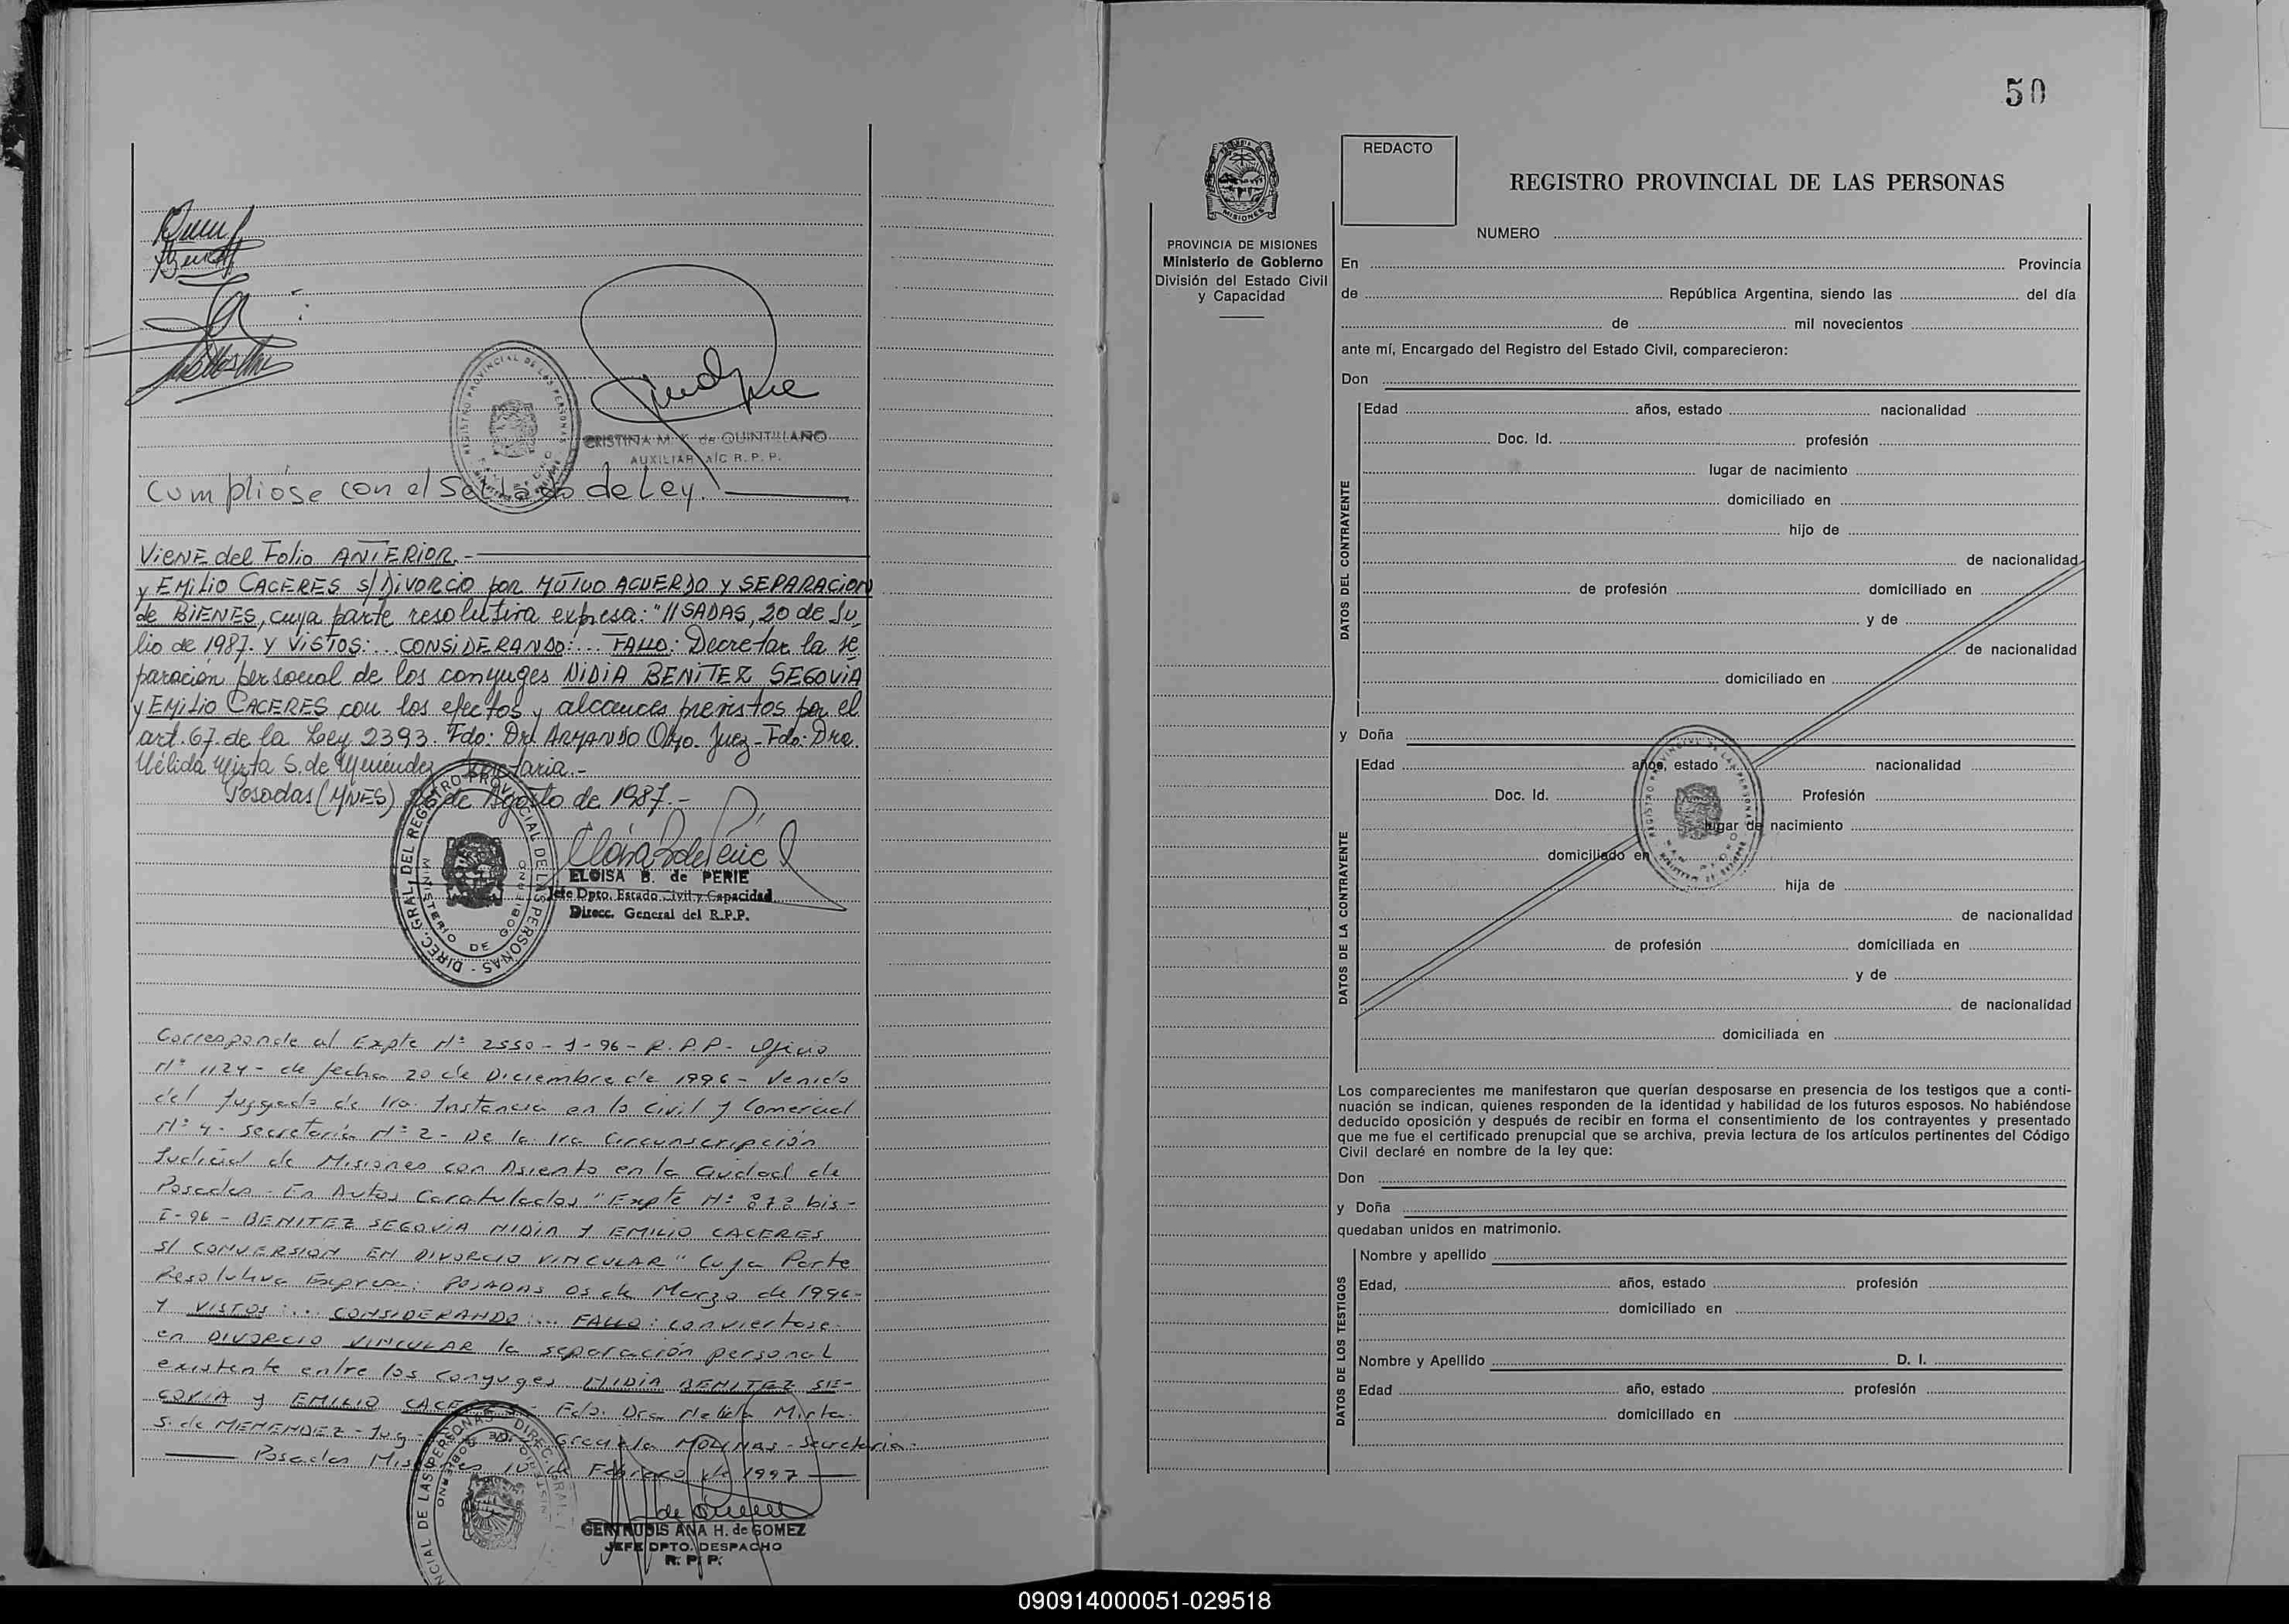 CRISTINA M. K. de QUINTILLANO
AUXILIAR A/C R. P. P.
Cumplióse con el Sellado de Ley.
VIENE del Folio ANTERIOR.-
y EMILIO CACERES s/ DIVORCIO por MÚTUO ACUERDO Y SEPARACION
de BIENES, cuya parte resolutiva expresa: "//SADAS, 20 de Ju_
lio de 1987. Y VISTOS:... CONSIDERANDO:... FALLO: Decretar la se
paración personal de los conyuges NIDIA BENITEZ SEGOVIA
y EMILIO CACERES con los efectos y alcances previstos por el
art. 67 de la Ley 2393. Fdo: Dr. ARMANDO Juez - Fdo: Dra.
Nélida Mirta S. de Menéndez Secretaria.-
Posadas (MNES) 26 de Agosto de 1987.-
DIREC. GRAL. DEL REGISTRO PROVINCIAL DE LAS PERSONAS -
MINISTERIO DE GOBIERNO
ELOISA B. de PERIE
Jefe Dpto. Estado Civil y Capacidad
Direcc. General del R.P.P.
Corresponde al Expte Nº 2550 - J - 96 - R.P.P. - Oficio
Nº 1124 - de fecha 20 de Diciembre de 1996 - Venido
del Juzgado de 1ra. Instancia en lo Civil y Comercial
Nº 4 - Secretaría Nº 2 - De la 1ra Circunscripción
Judicial de Misiones con Asiento en la Ciudad de
Posadas - En Autos Caratulados "Expte Nº 873 bis -
I-96 - BENITEZ SEGOVIA NIDIA Y EMILIO CACERES
S/ CONVERSION EN DIVORCIO VINCULAR" Cuya Parte
Resolutiva Expresa: POSADAS 05 de Marzo de 1996-
Y VISTOS:... CONSIDERANDO:... FALLO: conviertase
en DIVORCIO VINCULAR la separación personal
existente entre los conyuges NIDIA BENITEZ SE-
GOVIA y EMILIO CACERES - Fdo. Dra Nelida Mirta
S. de MENENDEZ - Juez - Graciela MOLINAS - Secretaria
Posadas Misiones 10 de Febrero de 1997
GERTRUDIS ANA H. de GOMEZ
JEFE DPTO. DESPACHO
R. P. P.
50
REDACTO
REGISTRO PROVINCIAL DE LAS PERSONAS
MISIONES
PROVINCIA DE MISIONES
Ministerio de Gobierno
División del Estado Civil
y Capacidad
NUMERO
En Provincia
de República Argentina, siendo las del día
de mil novecientos
ante mí, Encargado del Registro del Estado Civil, comparecieron:
Don
DATOS DEL CONTRAYENTE
Edad años, estado nacionalidad
Doc. Id. profesión
lugar de nacimiento
domiciliado en
hijo de
de nacionalidad
de profesión domiciliado en
y de
de nacionalidad
domiciliado en
y Doña
DATOS DE LA CONTRAYENTE
Edad años, estado nacionalidad
Doc. Id. Profesión
lugar de nacimiento
domiciliado en
hija de
de nacionalidad
de profesión domiciliada en
y de
de nacionalidad
domiciliada en
Los comparecientes me manifestaron que querían desposarse en presencia de los testigos que a conti-
nuación se indican, quienes responden de la identidad y habilidad de los futuros esposos. No habiéndose
deducido oposición y después de recibir en forma el consentimiento de los contrayentes y presentado
que me fue el certificado prenupcial que se archiva, previa lectura de los artículos pertinentes del Código
Civil declaré en nombre de la ley que:
Don
y Doña
quedaban unidos en matrimonio.
DATOS DE LOS TESTIGOS
Nombre y apellido
Edad, años, estado profesión
domiciliado en
Nombre y Apellido D. I.
Edad año, estado profesión
domiciliado en
090914000051-029518